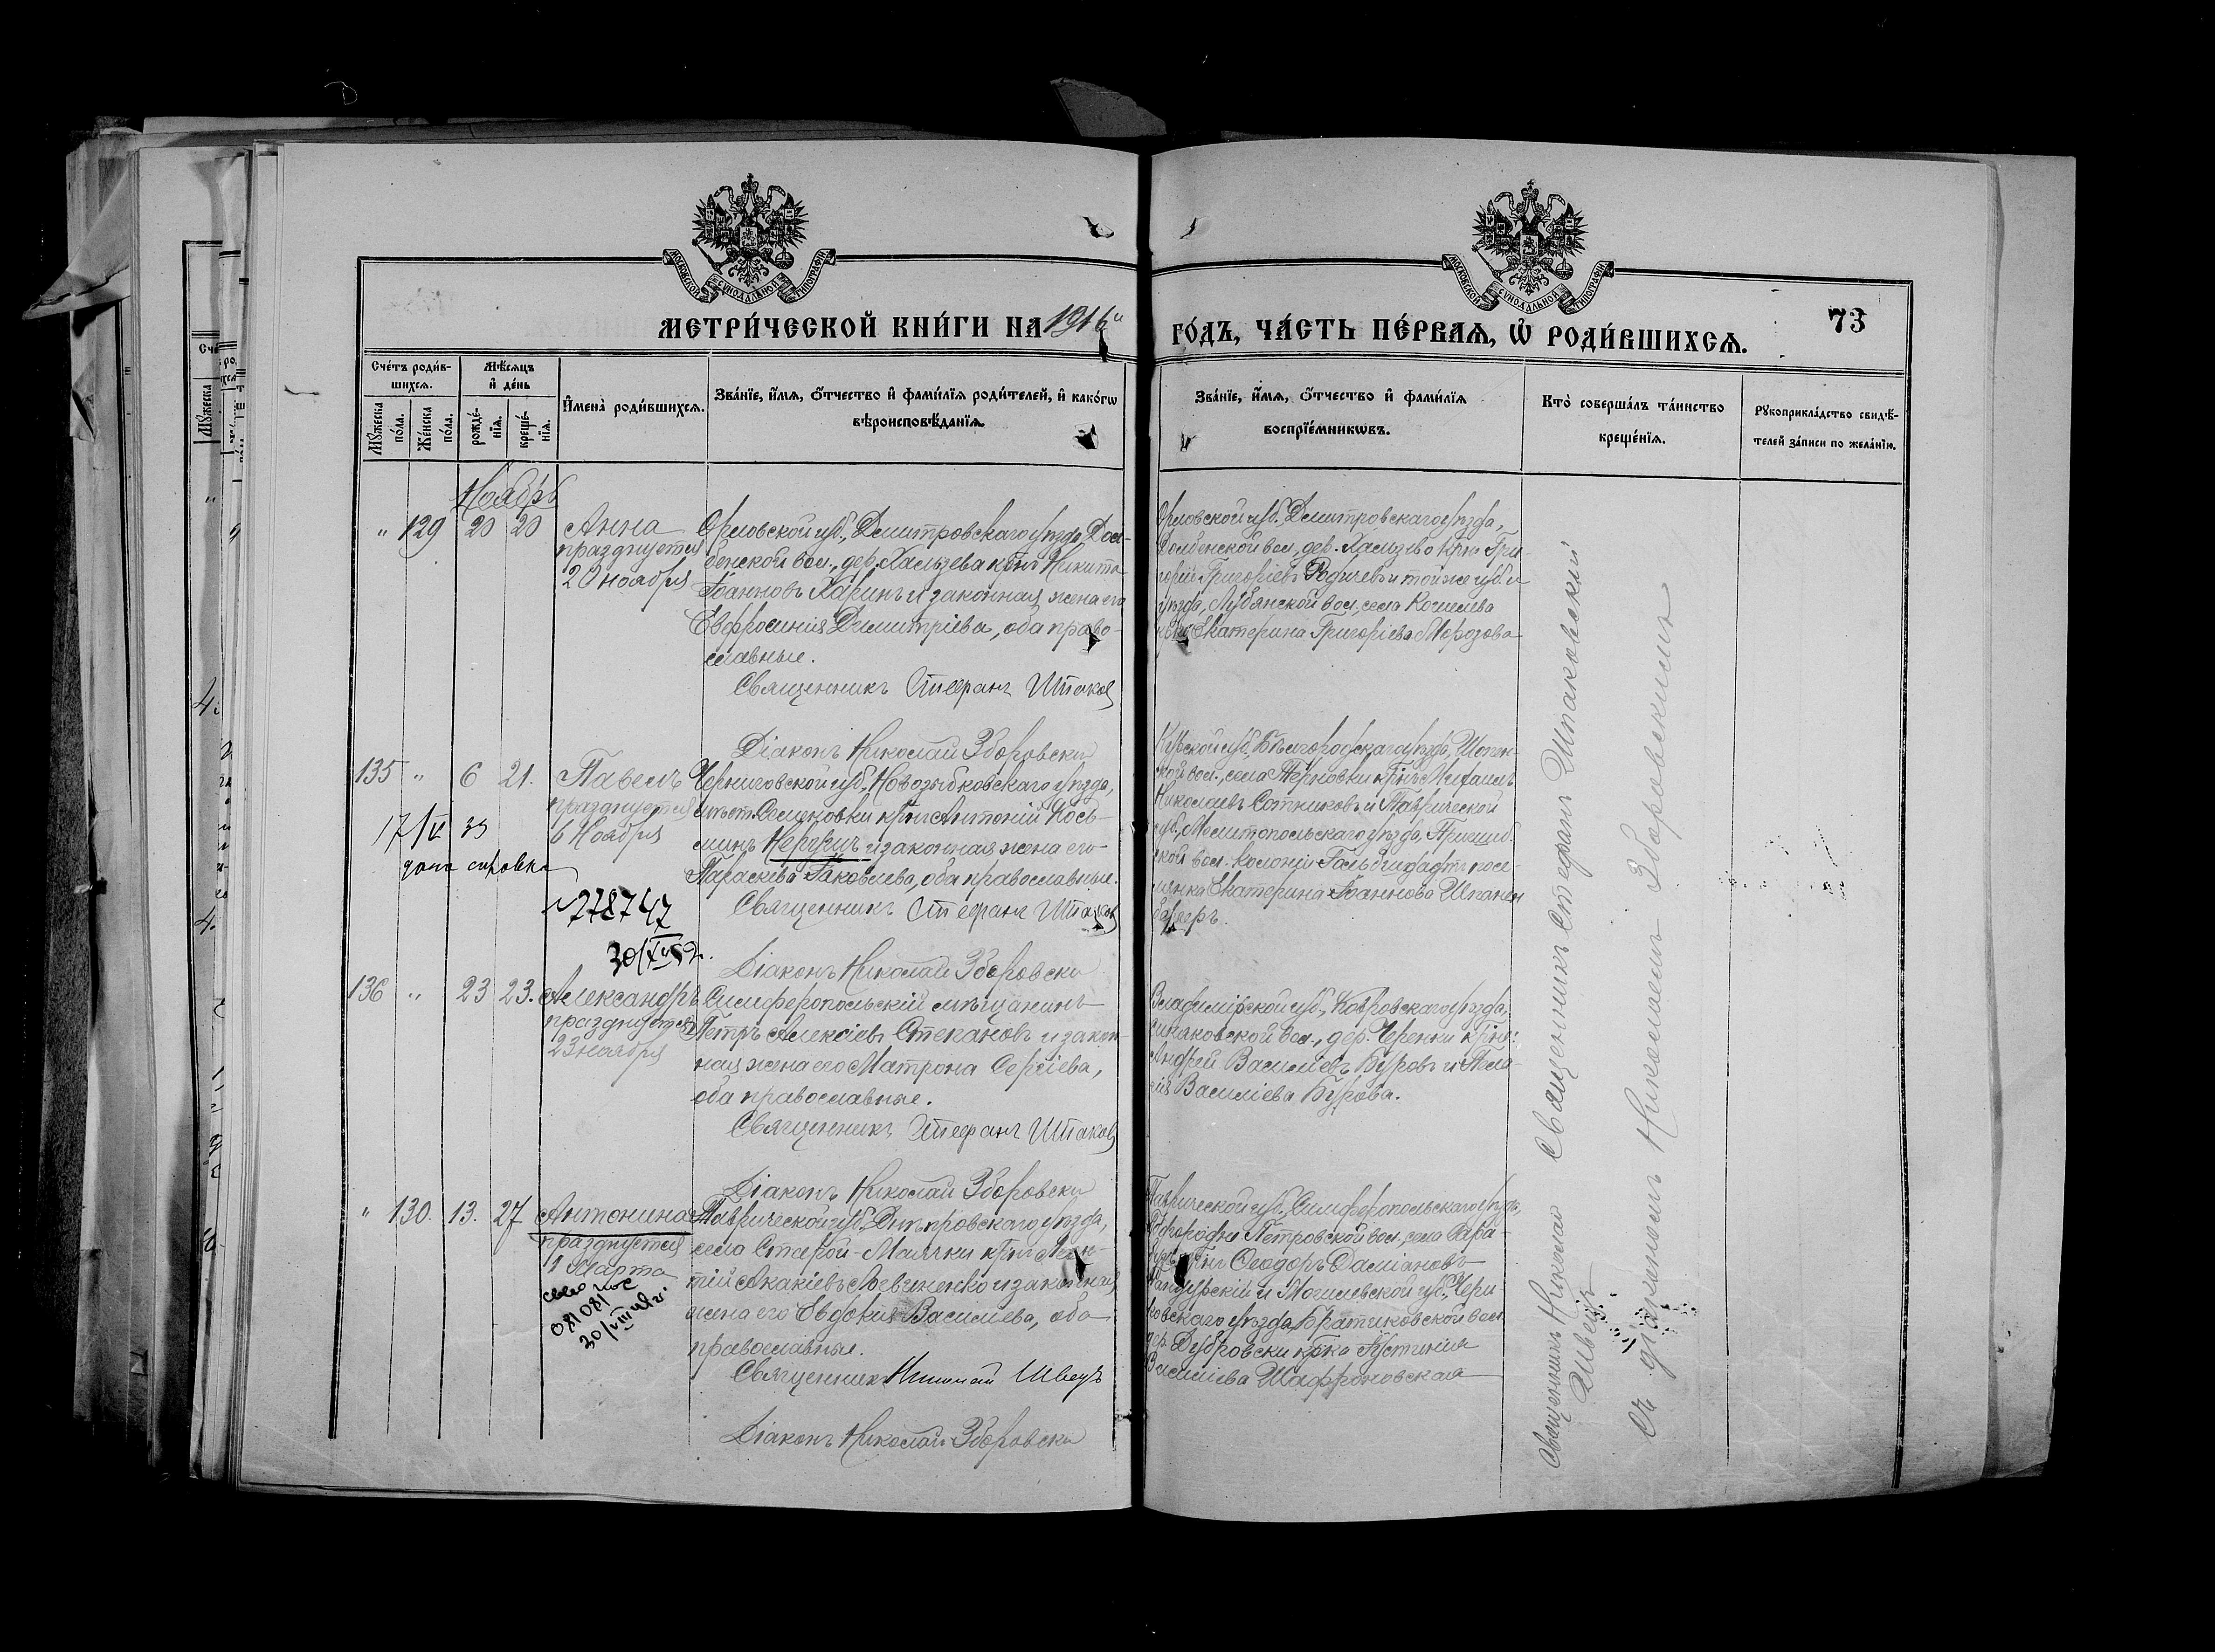 МОСКОВСКОЙ СУНОДАЛЬНОЙ ТИПОГРАФІИ
МОСКОВСКОЙ СУНОДАЛЬНОЙ ТИПОГРАФІИ
МЕТРИ́ЧЕСКОЙ КНИ́ГИ НА 1916й
ГО́ДЪ, ЧА́СТЬ ПЕ́РВАЯ, Ѿ РОДИ́ВШИХСЯ.
73
Сче́тъ роди́в-
шихся.
Мѣ́сяцъ
и҆ де́нь
Мꙋжеска
по́ла.
Же́нска
по́ла.
рожде́-
нїя.
креще́-
нїя.
И҆мена̀ роди́вшихся.
Зва́нїе, и҆́мя, ѻ҆́тчество и҆ фами́лїя роди́телей, и҆ како́гѡ
вѣроисповѣ́данїя.
Зва́нїе, и҆́мя, ѻ҆́тчество и҆ фами́лїя
воспрїе́мникѡвъ.
Кто̀ соверша́лъ та́инство
креще́нїя.
Рꙋкоприкла́дство свидѣ́-
телей за́писи по жела́нїю.
Ноябрь
" 129 20 20 Анна
празднуется
20 ноября
Орловской губ., Димитровскаго уѣзда, Дол-
бенской вол., дер. Хальзева крнъ Никита
Іоанновъ Харинъ и законная жена его
Евфросинія Димитріева, оба право-
славные.
Священникъ Стефанъ Шпаков
Діаконъ Николай Зборовски
Орловской губ. Димитровскаго уѣзда,
Долбенской вол., дер. Хальзево крнъ Гри-
горій Григоріевъ Родичевъ и той же губ. и
уѣзда, Лубянской вол., села Кошелева
Екатерина Григоріева Морозова
135 " 6 21. Павелъ
празднуется
6 Ноября
17/V 39
дана справка
№278747
Черниговской губ., Новозыбковскаго уѣзда,
мѣст. Семеновки крнъ Антоній Кось-
минъ и законная жена его
Параскева Іаковлева, оба православные.
Священникъ Стефанъ Шпаков
Діаконъ Николай Зборовски
Курской губ., Бѣлгородскаго уѣзда, Шопен-
ской вол., села Терновки крнъ Михаилъ
Николаевъ Сотниковъ и Таврической
губ., Мелитопольскаго уѣзда, Пришиб-
ской вол. колоніи Гальбштадтъ посе-
лянка Екатерина Іоаннова Шпанен
136 " 23 23. Александръ
празднуется
23 ноября
Симферопольскій мѣщанинъ
Петръ Алексіевъ Степановъ и закон-
ная жена его Матрона Сергіева,
оба православные.
Священникъ Стефанъ Шпаков
Діаконъ Николай Зборовски
Владимірской губ., Ковровскаго уѣзда,
вол., дер. Черенки крне:
Андрей Василіевъ Буровъ и Пела-
гія Василіева Бурова.
" 130. 13. 27 Антонина
празднуется
1 Марта
Таврической губ., Днѣпровскаго уѣзда,
села Старой-Маячки крнъ Леон-
тій Акакіевъ Левченко и законная
жена его Евдокія Василіева, оба
православные.
Священникъ Николай Швецъ
Діаконъ Николай Зборовски
Таврической губ., Симферопольскаго уѣзда,
Петровской вол., села Сара-
Ѳеодоръ Даміановъ
и Могилевской губ., Чери-
ковскаго уѣзда, Братиковской вол.
дер. Дубровски крка Іустинія
Василіева Шафроновская
Священникъ Стефанъ Шпаковскій
Священникъ Николай
Швецъ
Съ діакономъ Николаемъ Зборовскимъ